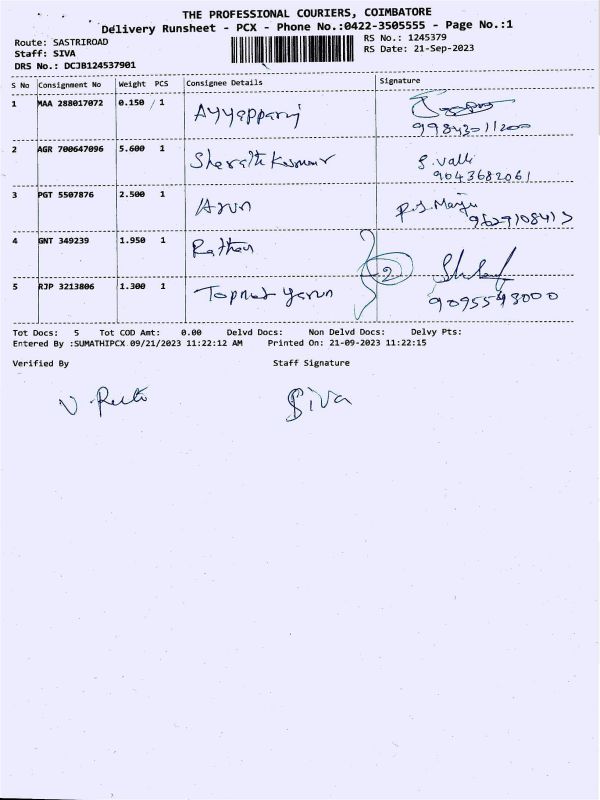 THE PROFESSIONAL COURIERS, COIMBATORE
Delivery Runsheet - PCX - Phone No.:0422-3505555 - Page No.:1
Route: SASTRIROAD
RS No.: 1245379
Staff: SIVA
RS Date: 21-Sep-2023
DRS No.: DCJB124537901
S No Consignment No Weight PCS Consignee Details Signature
1 MAA 288017072 0.150 / 1 Ayyappan
2 AGR 700647096 5.600 1 Sharath Kumar S. Valli
9043682061
3 PGT 5507876 2.500 1 Arun
4 GNT 349239 1.950 1 2
5 RJP 3213806 1.300 1
Tot Docs: 5 Tot COD Amt: 0.00 Delvd Docs: Non Delvd Docs: Delvy Pts:
Entered By :SUMATHIPCX 09/21/2023 11:22:12 AM Printed On: 21-09-2023 11:22:15
Verified By Staff Signature
Siva